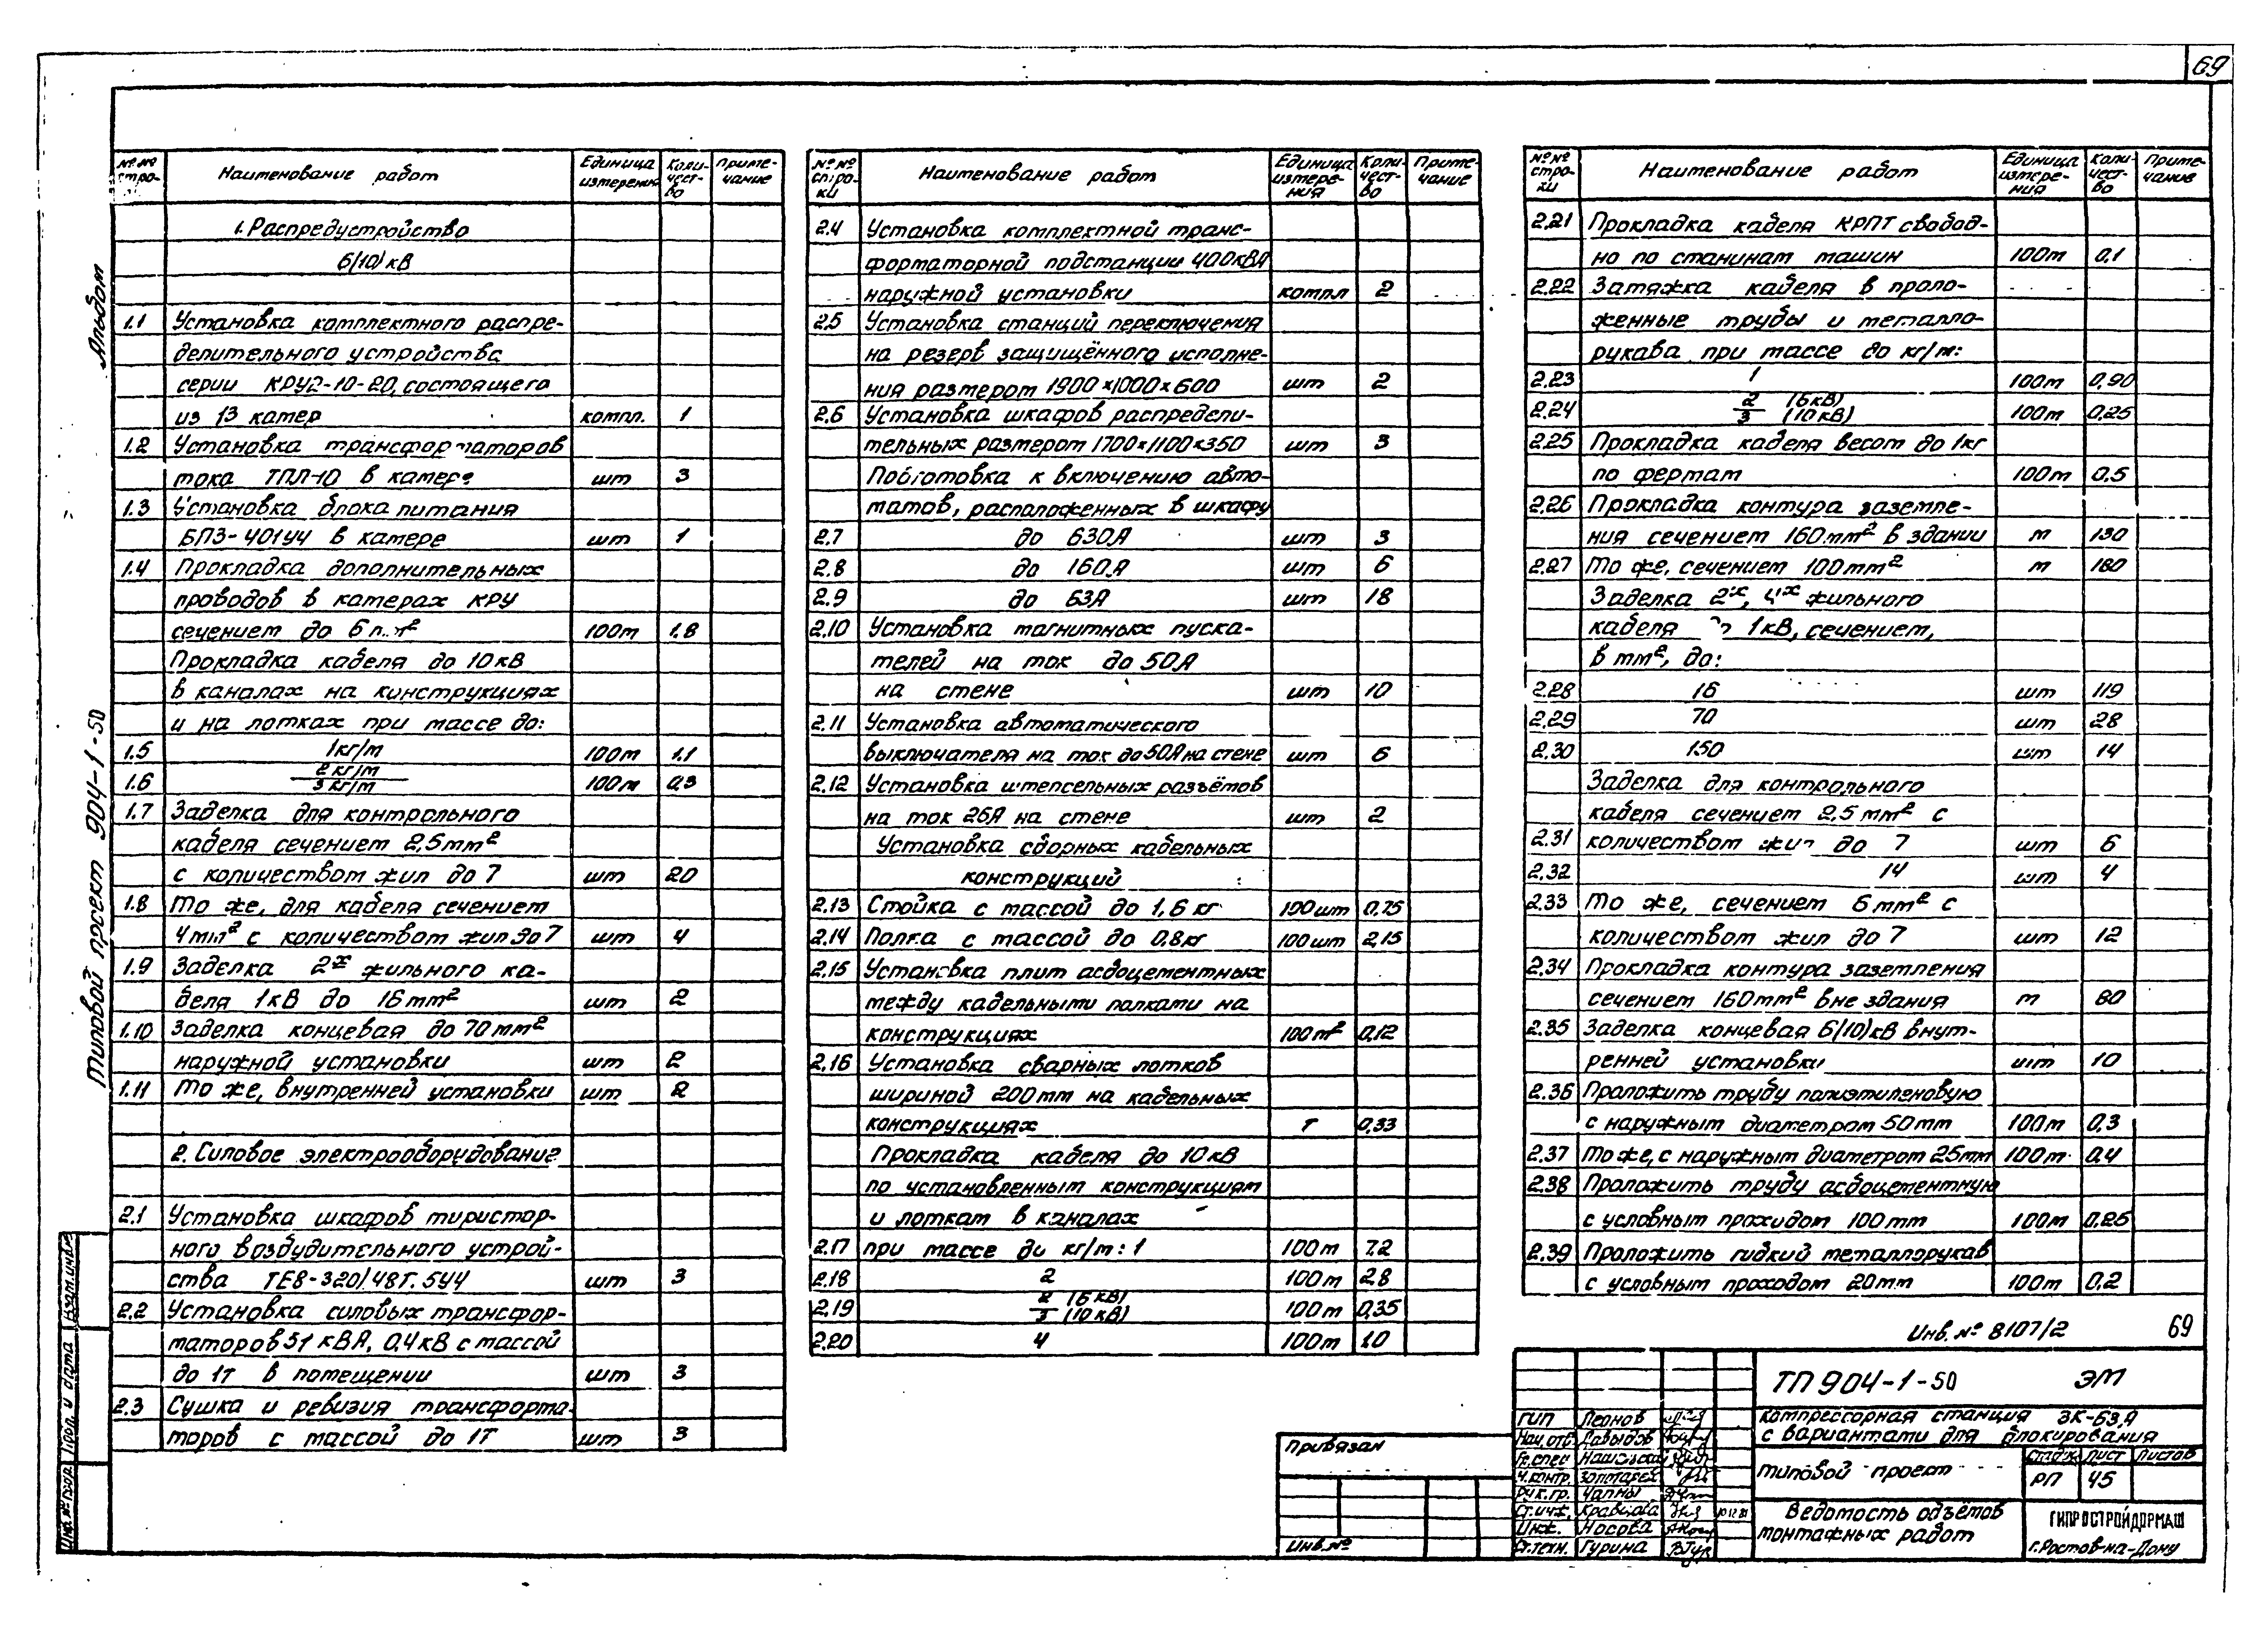 69
Альбом
Типовой проект 904-1-50
№№ стро-
Наименование работ
Единица измерения
Коли-чест-во
Приме-чание
1. Распредустройство
6(10) кВ
1.1 Установка комплектного распре-
делительного устройства
серии КРУ2-10-20, состоящего
из 13 камер компл. 1
1.2 Установка трансформаторов
тока ТПЛ-10 в камере шт 3
1.3 Установка блока питания
БПЗ-401У4 в камере шт 1
1.4 Прокладка дополнительных
проводов в камерах КРУ
сечением до 6 мм² 100м 1,8
Прокладка кабеля до 10 кВ
в каналах на конструкциях
и на лотках при массе до:
1.5 1кг/м 100м 1.1
1.6 2 кг/м / 3 кг/м 100м 0,3
1.7 Заделка для контрольного
кабеля сечением 2,5 мм²
с количеством жил до 7 шт 20
1.8 То же, для кабеля сечением
4мм² с количеством жил до 7 шт 4
1.9 Заделка 2х жильного ка-
беля 1кВ до 16 мм² шт 2
1.10 Заделка концевая до 70 мм²
наружной установки шт 2
1.11 То же, внутренней установки шт 2
2. Силовое электрооборудование
2.1 Установка шкафов тиристор-
ного возбудительного устрой-
ства ТЕ8-320/48Т.5У4 шт 3
2.2 Установка силовых трансфор-
маторов 51 кВА, 0,4 кВ с массой
до 1т в помещении шт 3
2.3 Сушка и ревизия трансформа-
торов с массой до 1Т шт 3
№№ стро-ки
Наименование работ
Единица измере-ния
Коли-чест-во
Приме-чание
2.4 Установка комплектной транс-
форматорной подстанции 400кВА
наружной установки компл 2
2.5 Установка станций переключения
на резерв защищённого исполне-
ния размером 1900×1000×600 шт 2
2.6 Установка шкафов распредели-
тельных размером 1700×1100×350 шт 3
Подготовка к включению авто-
матов, расположенных в шкафу
2.7 до 630А шт 3
2.8 до 160А шт 6
2.9 до 63А шт 18
2.10 Установка магнитных пуска-
телей на ток до 50А
на стене шт 10
2.11 Установка автоматического
выключателя на ток до 50А на стене шт 6
2.12 Установка штепсельных разъёмов
на ток 25А на стене шт 2
Установка сборных кабельных
конструкций
2.13 Стойка с массой до 1,6 кг 100шт 0,75
2.14 Полка с массой до 0,8кг 100шт 2,15
2.15 Установка плит асбоцементных
между кабельными полками на
конструкциях 100м² 0,12
2.16 Установка сварных лотков
шириной 200мм на кабельных
конструкциях т 0,33
Прокладка кабеля до 10 кВ
по установленным конструкциям
и лоткам в каналах
2.17 при массе до кг/м: 1 100м 7.2
2.18 2 100м 2,8
2.19 2 (6 кВ) / 3 (10 кВ) 100м 0,35
2.20 4 100м 1.0
№№ стро-ки
Наименование работ
Единица измере-ния
Коли-чест-во
Приме-чание
2.21 Прокладка кабеля КРПТ свобод-
но по станинам машин 100м 0,1
2.22 Затяжка кабеля в проло-
женные трубы и металло-
рукава при массе до кг/м:
2.23 1 100м 0,90
2.24 2 (6 кВ) / 3 (10 кВ) 100м 0,25
2.25 Прокладка кабеля весом до 1кг
по фермам 100м 0,5
2.26 Прокладка контура заземле-
ния сечением 160мм² в здании м 130
2.27 То же, сечением 100мм² м 180
Заделка 2х, 4х жильного
кабеля до 1кВ, сечением,
в мм², до:
2.28 16 шт 119
2.29 70 шт 28
2.30 150 шт 14
Заделка для контрольного
кабеля сечением 2,5 мм² с
2.31 количеством жил до 7 шт 6
2.32 14 шт 4
2.33 То же, сечением 6 мм² с
количеством жил до 7 шт 12
2.34 Прокладка контура заземления
сечением 160мм² вне здания м 80
2.35 Заделка концевая 6(10)кВ внут-
ренней установки шт 10
2.36 Проложить трубу полиэтиленовую
с наружным диаметром 50 мм 100м 0,3
2.37 То же, с наружным диаметром 25мм 100м 0,4
2.38 Проложить трубу асбоцементную
с условным проходом 100 мм 100м 0,25
2.39 Проложить гибкий металлорукав
с условным проходом 20мм 100м 0,2
Инв. № 8107/2 69
ТП 904-1-50 ЭМ
Компрессорная станция 3К-63А
с вариантами для блокирования
Типовой проект
Стадия Лист Листов
РП 45
Ведомость объёмов
монтажных работ
ГИПРОСТРОЙДОРМАШ
г. Ростов-на-Дону
ГИП Леонов
Нач. отд. Давыдов
Гл. спец
Н.контр. Золотарев
Рук. гр. Чапны
Ст. инж. Кравцова
Инж. Носова
Ст. техн. Гурина
Привязан
Инв. №
Инв. № подл. Подп. и дата Взам. инв. №